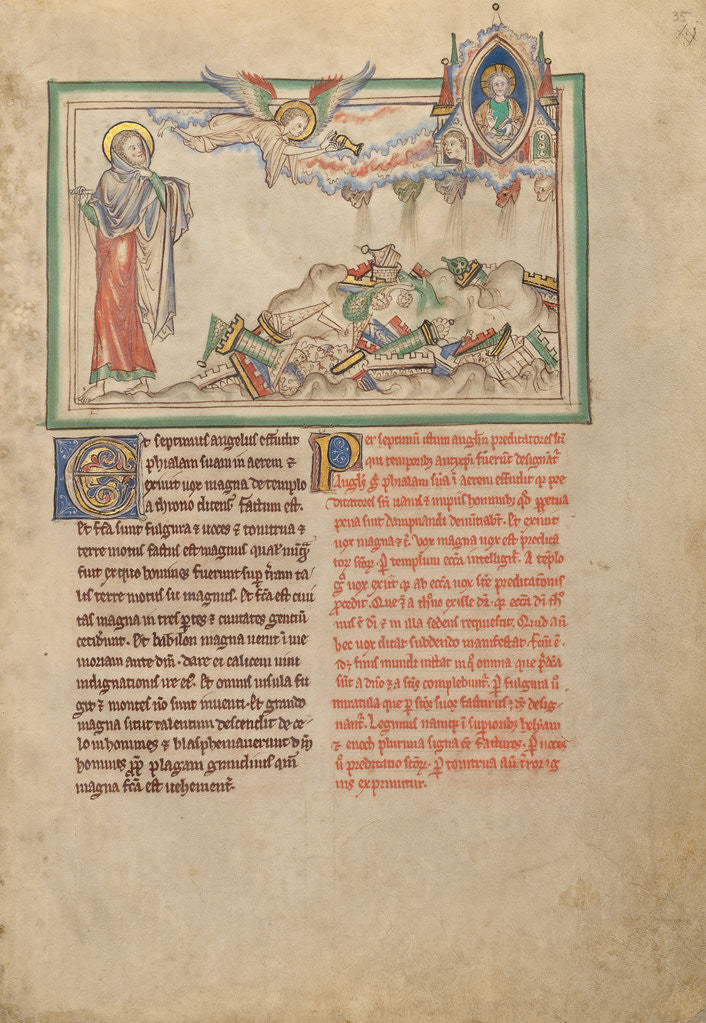 35
Et septimus angelus effudit
phialam suam in aerem &
exiuit uox magna de templo
a throno dicens. Factum est.
Et fc̃a sunt fulgura & uoces & tonitrua &
terre motus factus est magnus qualis
fuit ex quo homines fuerunt sup̃ t̃ram ta-
lis terre motus sic magnus. Et fc̃a est ciui
tas magna in tres p̃tes & ciuitates gentiũ
ceciderunt. Et babilon magna uenit i me
moriam ante dm̃. dare ei calicem uini
indignationis ire ei. Et omnis insula fu
git & montes nõ sunt inuenti. Et grando
magna sicut talentum descendit de ce-
lo in homines & blasphemauerunt dm̃
homines pp̃ plagam grandinis qm̃
magna fc̃a est uehement̃.
Per septimũ istum angl̃m predicatores
qui temporib; antix̃pi fuerint designãt̃
Angl̃s phialam suã i aerem effudit q̃ pre
dicatores sc̃i uanis & impiis hominib; qd̃ ppetua
pena sint dampnandi denuntiabt̃. Et exiuit
uox magna &c̃. Vox magna uox est predica
toȝ sc̃oȝ. P̃ templum ecc̃a intelligit̃. A tẽplo
g̃ uox exiit q̃ ab ecc̃a uox sc̃e predicationis
p̃cedit. Que & a th̃no exisse dr̃. q̃ ecc̃a dĩ th̃
nus ẽ dĩ & in illa sedens requiescit. Quid aũ
hec uox dicat subdendo manifestat. Fc̃m ẽ.
id; finis mundi instat in q̃ omnia que p̃dc̃a
sũt a dño & a sc̃is complebunt̃. P̃ fulgura ũ
miracula que p̃ sc̃os suos facturus; dñs desig-
nant̃. Legimus namq; i supiorib; helyam
& enoch plurima signa ẽe facturos. P̃ uoces
ũ predicatio sc̃oȝ. P̃ tonitrua aũ t̃ror ig
nis exprimitur.